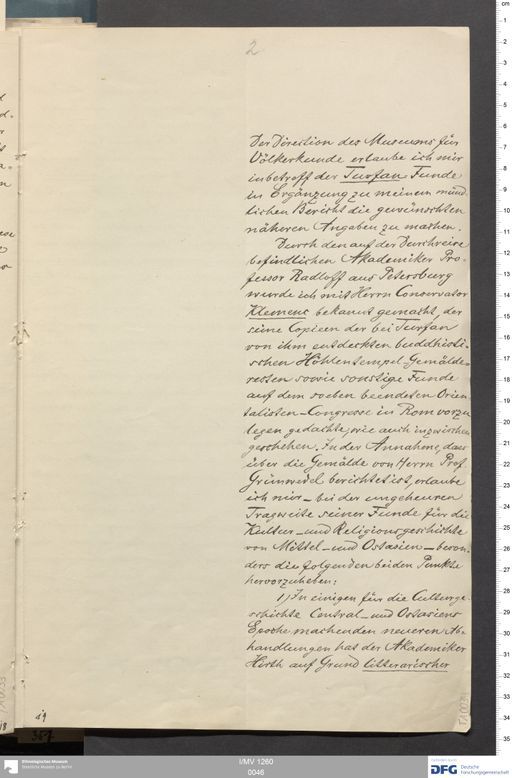 2
Der Direction des Museums für
Völkerkunde erlaube ich mir
inbetreff der Turfan Funde
in Ergänzung zu meinem münd
lichen Bericht die gewünschten
näheren Angaben zu machen.
Durch den auf der Durchreise
befindlichen Akademiker Pro-
fessor Radloff aus Petersburg
wurde ich mit Herrn Conservator
Klemenc bekannt gemacht, der
seine Copieen der bei Turfan
von ihm entdeckten buddhisti-
schen Höhlentempel-Gemälde-
resten sowie sonstige Funde
auf dem soeben beendeten Orien
talisten-Congresse in Rom vorzu
legen gedachte, wie auch inzwischen
geschehen. In der Annahme, dass
über die Gemälde von Herrn Prof.
Grünwedel berichtet ist, erlaube
ich mir – bei der ungeheuren
Tragweite seiner Funde für die
Kultur- und Religionsgeschichte
von Mittel- und Ostasien – beson-
ders die folgenden beiden Punkte
hervorzuheben:
1) In einigen für die Culturge-
schichte Central- und Ostasiens
Epoche machenden neueren Ab-
handlungen hat der Akademiker
Hirth auf Grund litterarischer
I/MV 1260
0046
Ethnologisches Museum
Staatliche Museen zu Berlin
DFG Deutsche
Forschungsgemeinschaft